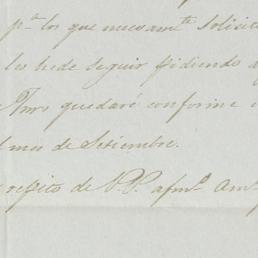 pª los que nuevamte solicit
les hede seguir pidiendo a
quedaré conforme
mes de Setiembre.
repito de V.P. afmº Amº